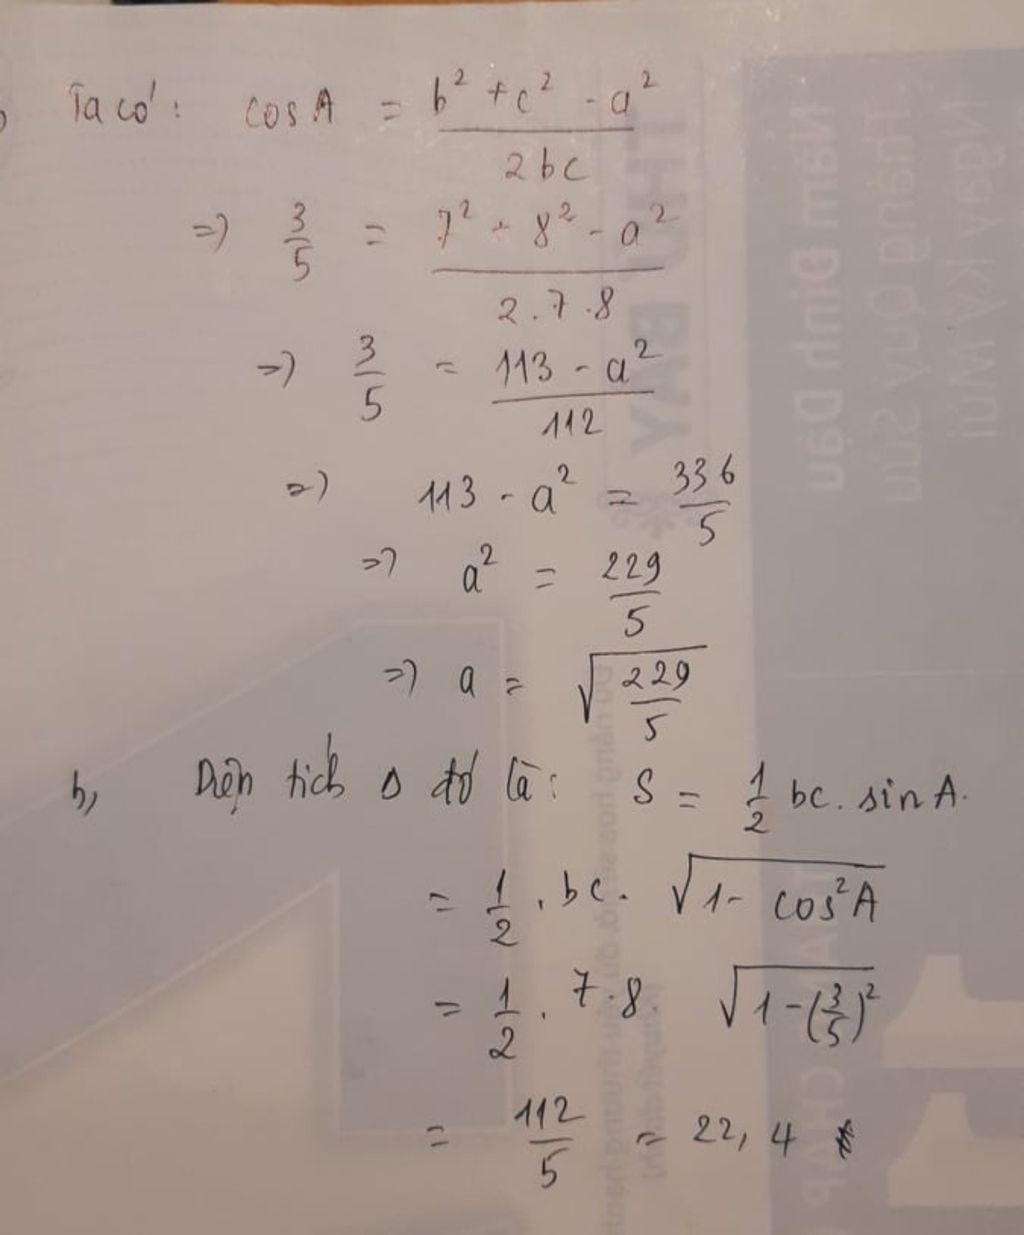 Ta có: cos A = b² + c² - a² / 2bc
=> 3/5 = 7² + 8² - a² / 2.7.8
=> 3/5 = 113 - a² / 112
=> 113 - a² = 336/5
=> a² = 229/5
=> a = √(229/5)
b, Diện tích Δ đó là: S = 1/2 bc. sin A.
= 1/2 . bc. √(1 - cos²A)
= 1/2 . 7.8. √(1-(3/5)²)
= 112/5 = 22,4